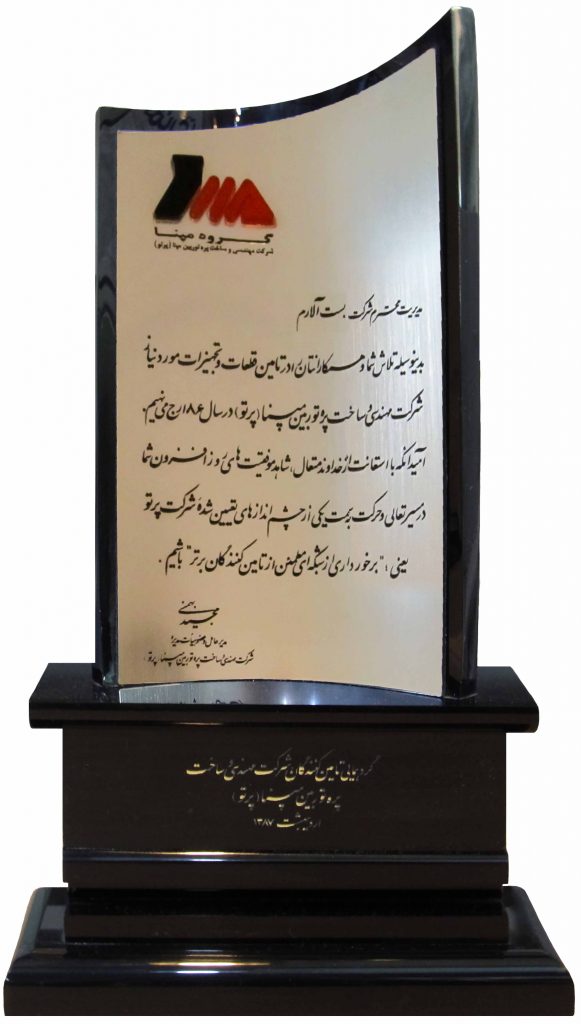 گروه مپنا
شرکت مهندسی و ساخت پره توربین مپنا (پرتو)
مدیریت محترم شرکت بست آلارم
بدینوسیله تلاش شما و همکارانتان را در تامین قطعات و تجهیزات مورد نیاز
شرکت مهندسی و ساخت پره توربین مپنا (پرتو) در سال ۸۶ ارج می‌نهیم.
امید آنکه با استعانت از خداوند متعال، شاهد موفقیت های روز افزون شما
در مسیر تعالی و حرکت به سمت یکی از چشم اندازهای تعیین شدۀ شرکت پرتو
یعنی : "برخورداری از شبکه ای مطمئن از تامین کنندگان برتر" باشیم .
مدیر عامل و عضو هیأت مدیره
شرکت مهندسی و ساخت پره توربین مپنا (پرتو)
گردهمایی تامین کنندگان شرکت مهندسی و ساخت
پره توربین مپنا (پرتو)
اردیبهشت ۱۳۸۷